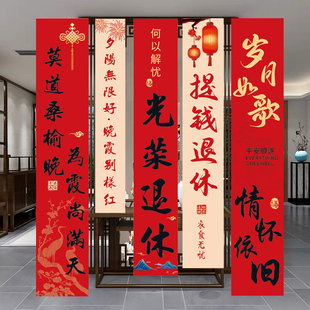 莫道桑榆晚
为霞尚满天
夕陽無限好·晚霞别樣红
何以解忧
光荣退休
提钱退休
衣食无忧
岁月如歌
平安顺遂
情怀依旧